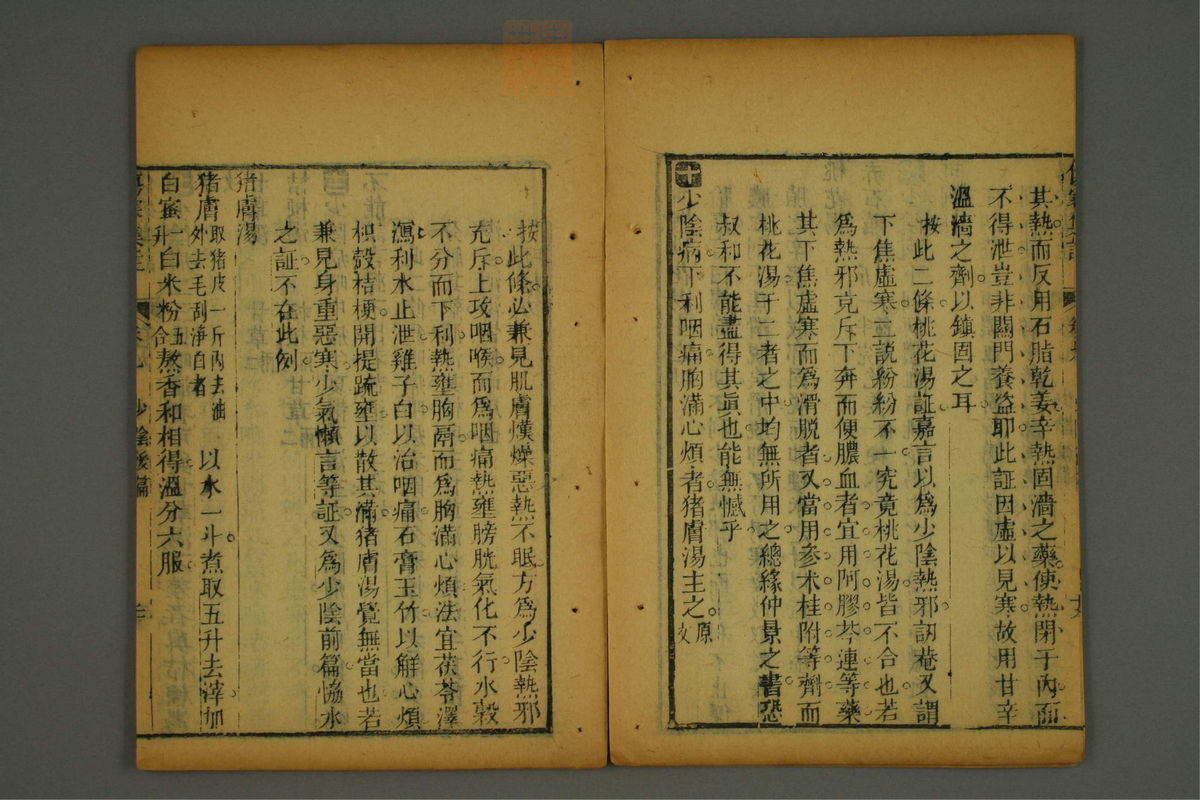 其熱而反用石脂乾姜辛熱固濇之藥使熱閉于內而
不得泄豈非關門養盜耶此証因虛以見寒故用甘辛
溫濇之劑以鎮固之耳
按此二條桃花湯証嘉言以爲少陰熱邪訒菴又謂
下焦虛寒立說紛紛不一究竟桃花湯皆不合也若
爲熱邪充斥下奔而便膿血者宜用阿膠芩連等藥
其下焦虛寒而爲滑脱者又當用參朮桂附等劑而
桃花湯于二者之中均無所用之總緣仲景之書恐
叔和不能盡得其眞也能無憾乎
十少陰病下利咽痛胸滿心煩者猪膚湯主之原文
按此條必兼見肌膚熯燥惡熱不眠方爲少陰熱邪
充斥上攻咽喉而爲咽痛熱壅膀胱氣化不行水榖
不分而下利熱壅胸鬲而爲胸滿心煩法宜茯苓澤
瀉利水止泄雞子白以治咽痛石膏玉竹以解心煩
枳殼桔梗開提疏壅以散其滿猪膚湯覺無當也若
兼見身重惡寒少氣懶言等証又爲少陰前篇協水
之証不在此例
猪膚湯
猪膚取猪皮一斤內去油外去毛刮淨白者以水一斗煮取五升去滓加
白蜜一升白米粉五合熬香和相得溫分六服
少陰後篇